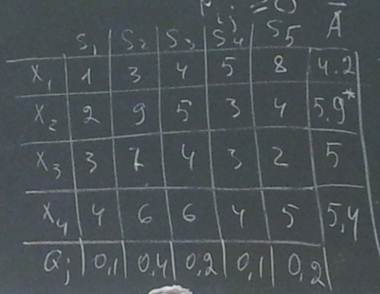 S₁ S₂ S₃ S₄ S₅ Ā
X₁ 1 3 4 5 8 4.2
X₂ 2 9 5 3 4 5.9*
X₃ 3 7 4 3 2 5
X₄ 4 6 6 4 5 5,4
Qj 0,1 0,4 0,2 0,1 0,2